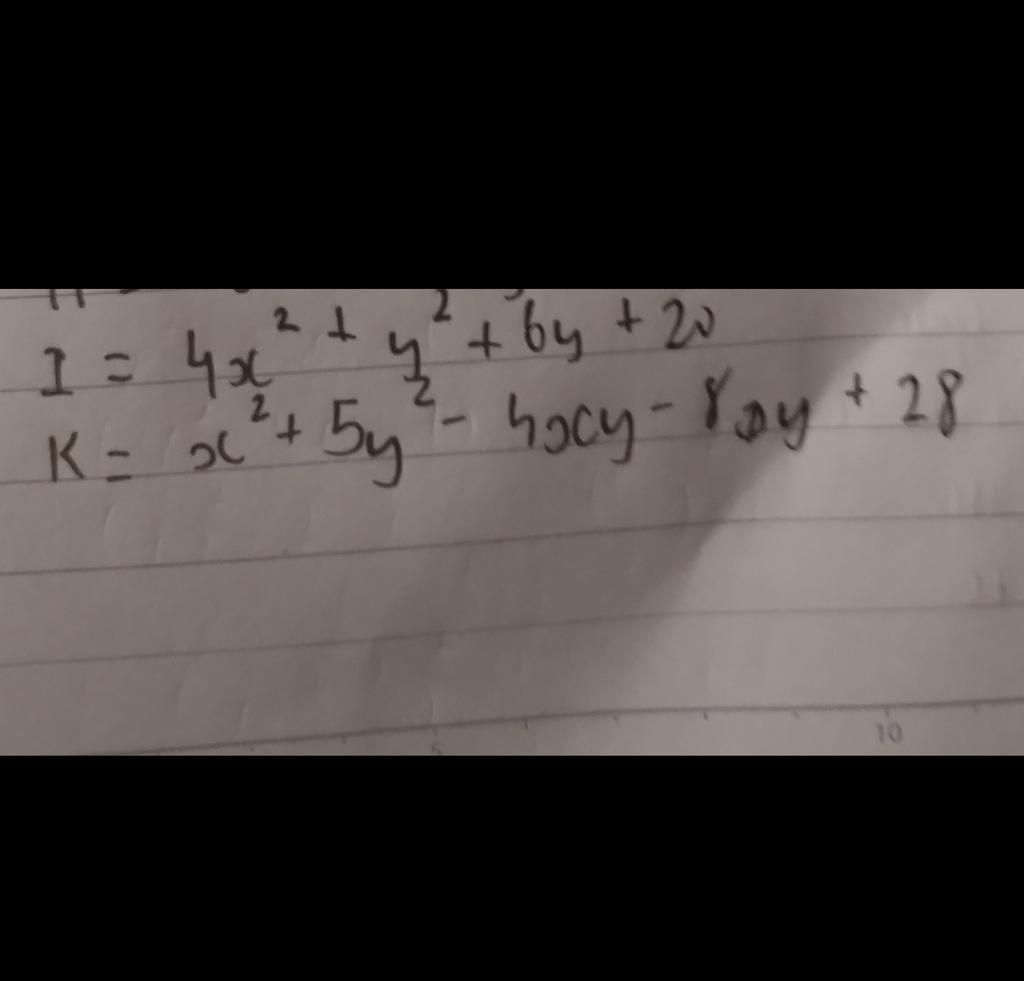 I = 4x² + y² + 6y + 20
K = x² + 5y² - 4xy - 8y + 28
10